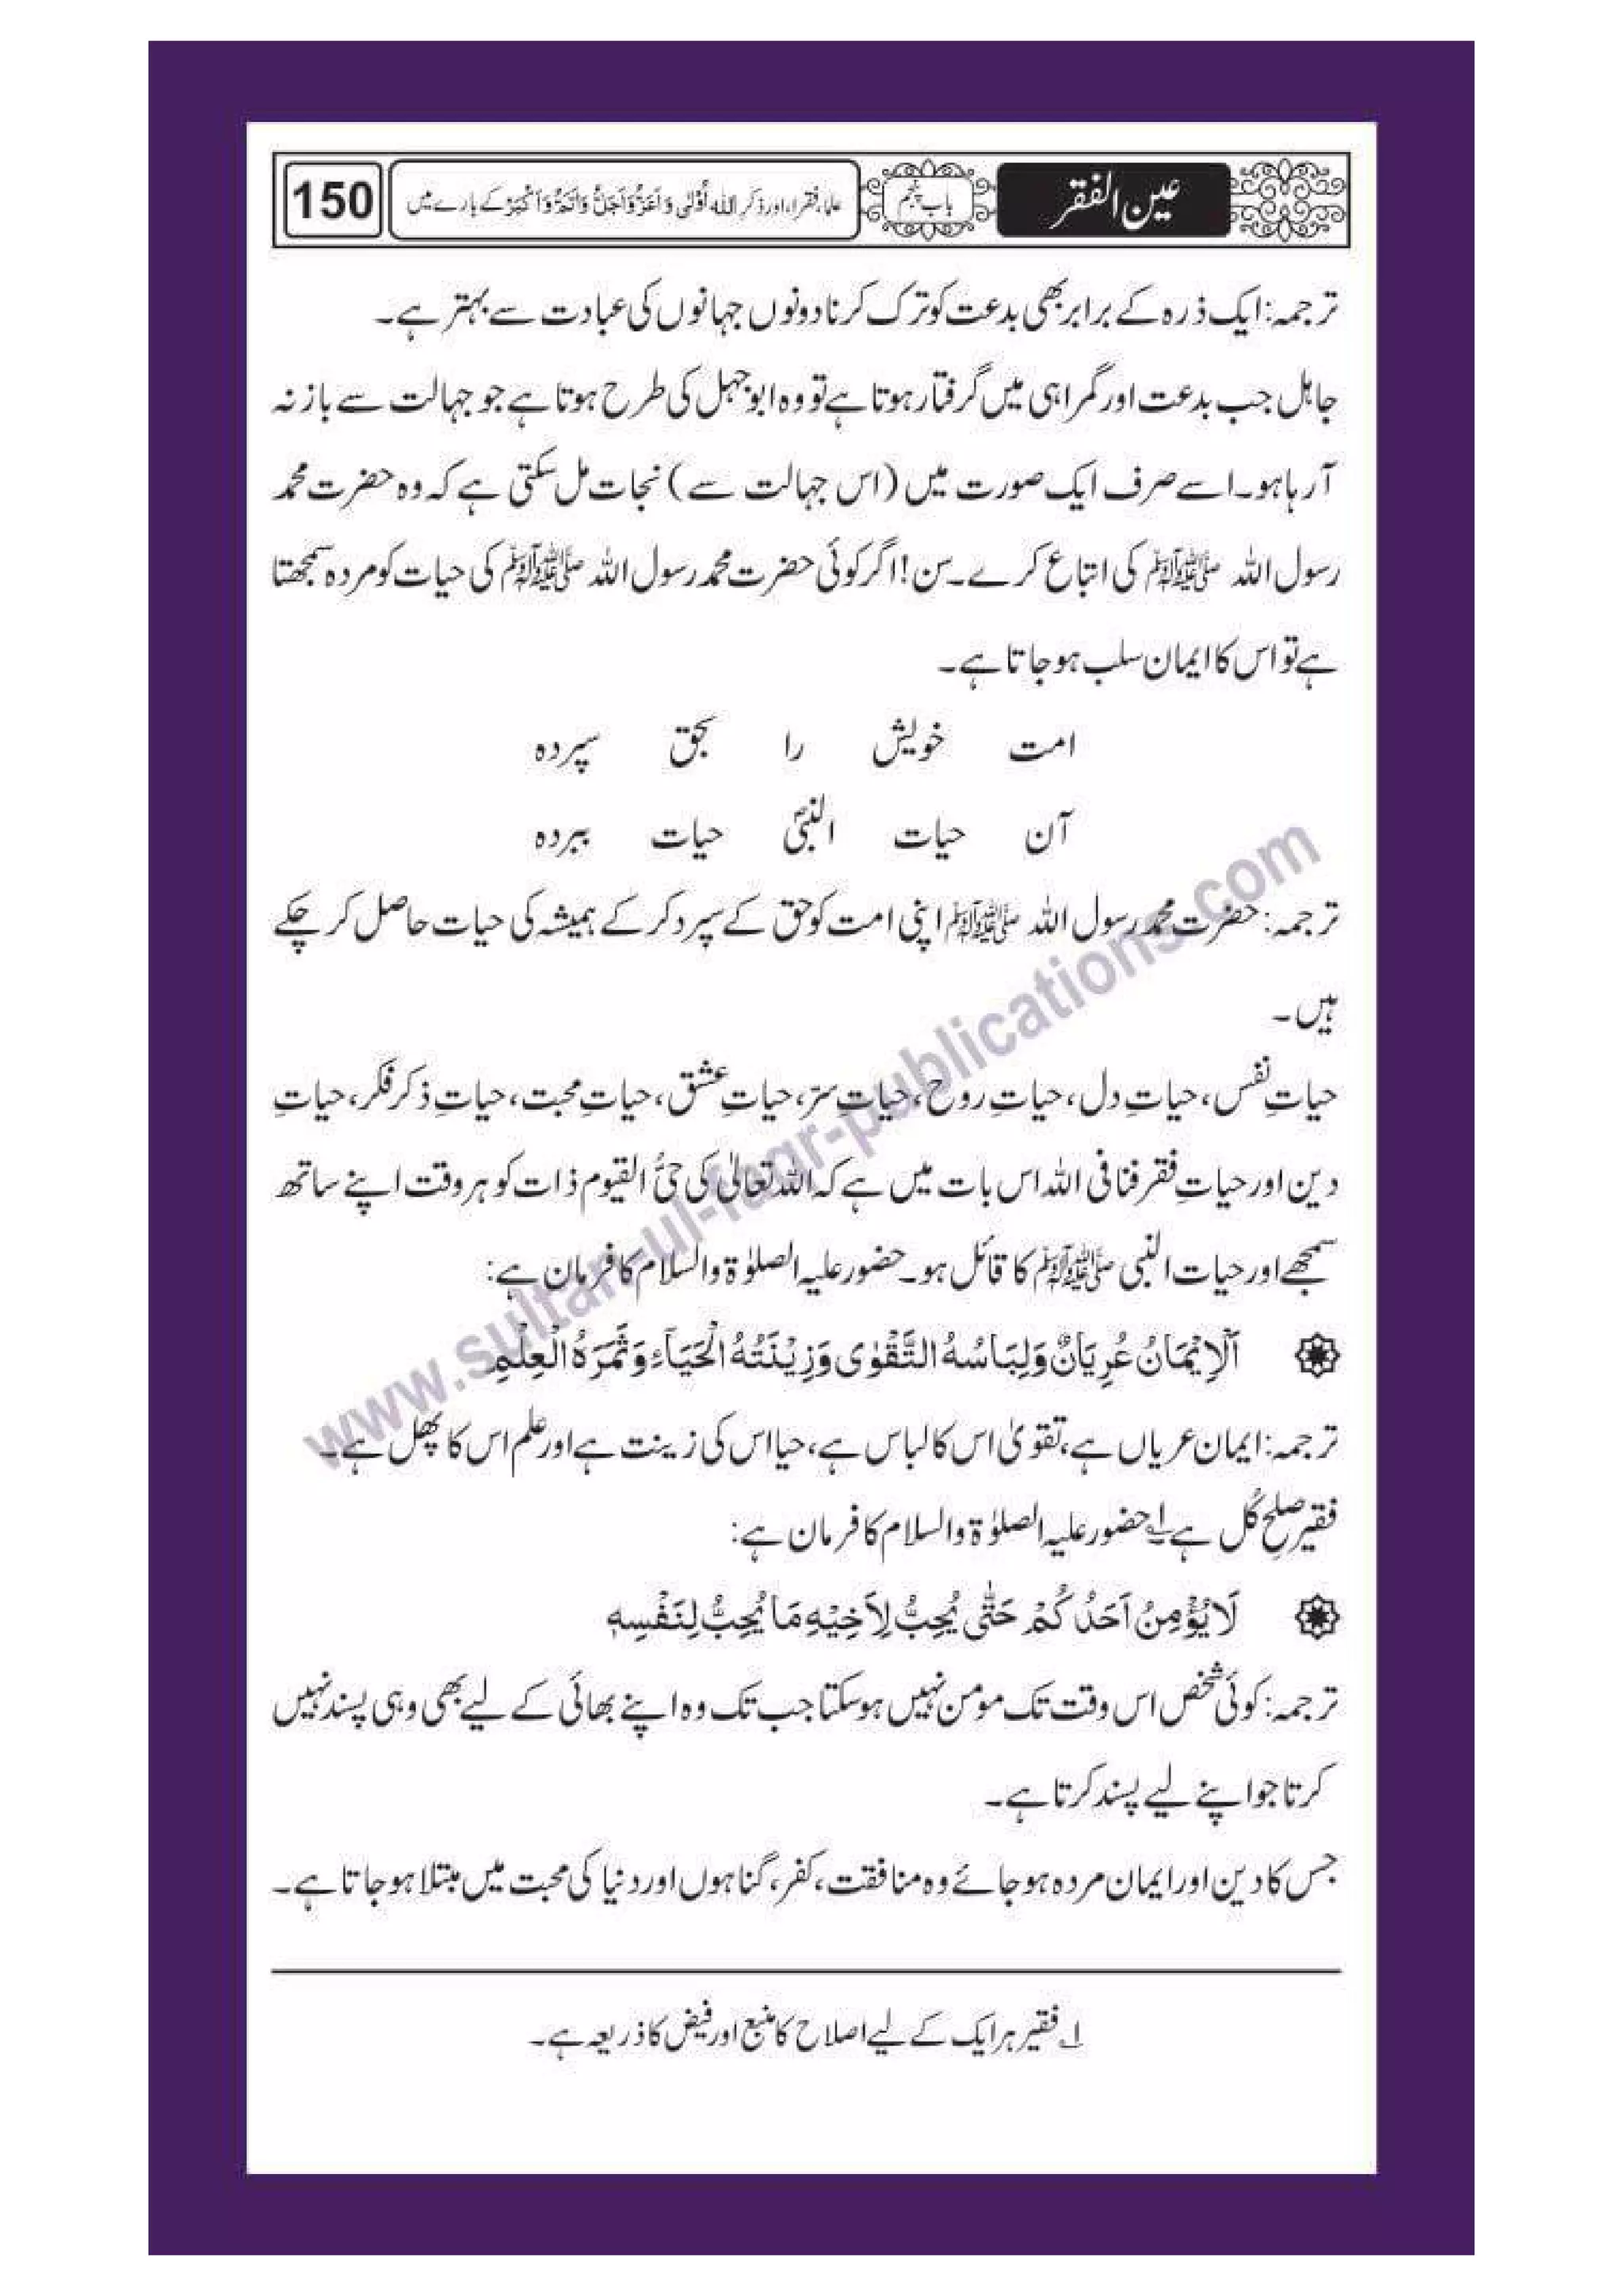 عین الفقر باب پنجم علماء، فقراء، اور ذکر اللہ اُوْلٰی وَاَعَزُّ وَاَجَلُّ وَاَتَمُّ وَاَکْبَرْ کے بارے میں 150
ترجمہ: ایک ذرہ کے برابر بھی بدعت کو ترک کرنا دونوں جہانوں کی عبادت سے بہتر ہے۔
جاہل جب بدعت اور گمراہی میں گرفتار ہوتا ہے تو وہ ابوجہل کی طرح ہوتا ہے جو جہالت سے باز نہ
آ رہا ہو۔ اسے صرف ایک صورت میں (اس جہالت سے) نجات مل سکتی ہے کہ وہ حضرت محمد
رسول اللہ ﷺ کی اتباع کرے۔ سن! اگر کوئی حضرت محمد رسول اللہ ﷺ کی حیات کو مردہ سمجھتا
ہے تو اس کا ایمان سلب ہو جاتا ہے۔
امت خویش را بحق سپردہ
آن حیات النبیؐ حیات ببردہ
ترجمہ: حضرت محمد رسول اللہ ﷺ اپنی امت کو حق کے سپرد کر کے ہمیشہ کی حیات حاصل کر چکے
ہیں۔
حیاتِ نفس، حیاتِ دل، حیاتِ روح، حیاتِ سرّ، حیاتِ عشق، حیاتِ محبت، حیاتِ ذکر فکر، حیاتِ
دین اور حیاتِ فقر فنا فی اللہ اس بات میں ہے کہ اللہ تعالیٰ کی حیُّ القیوم ذات کو ہر وقت اپنے ساتھ
سمجھے اور حیات النبی ﷺ کا قائل ہو۔ حضور علیہ الصلوٰۃ والسلام کا فرمان ہے:
اَلْاِیْمَانُ عُرِیَانٌ وَلِبَاسُہُ التَّقْوٰی وَزِیْنَتُہُ الْحَیَآءُ وَثَمَرَۃُ الْعِلْمِ
ترجمہ: ایمان عریاں ہے، تقویٰ اس کا لباس ہے، حیا اس کی زینت ہے اور علم اس کا پھل ہے۔
فقیر صلحِ کُل ہے۔۱ حضور علیہ الصلوٰۃ والسلام کا فرمان ہے:
لَا یُؤْمِنُ اَحَدُکُمْ حَتّٰی یُحِبُّ لِاَخِیْہِ مَا یُحِبُّ لِنَفْسِہٖ
ترجمہ: کوئی شخص اس وقت تک مومن نہیں ہو سکتا جب تک وہ اپنے بھائی کے لیے بھی وہی پسند نہیں
کرتا جو اپنے لیے پسند کرتا ہے۔
جس کا دین اور ایمان مردہ ہو جائے وہ منافقت، کفر، گناہوں اور دنیا کی محبت میں مبتلا ہو جاتا ہے۔
۱ فقیر ہر ایک کے لیے اصلاح کا منبع اور فیض کا ذریعہ ہے۔
www.sultan-ul-faqr-publications.com